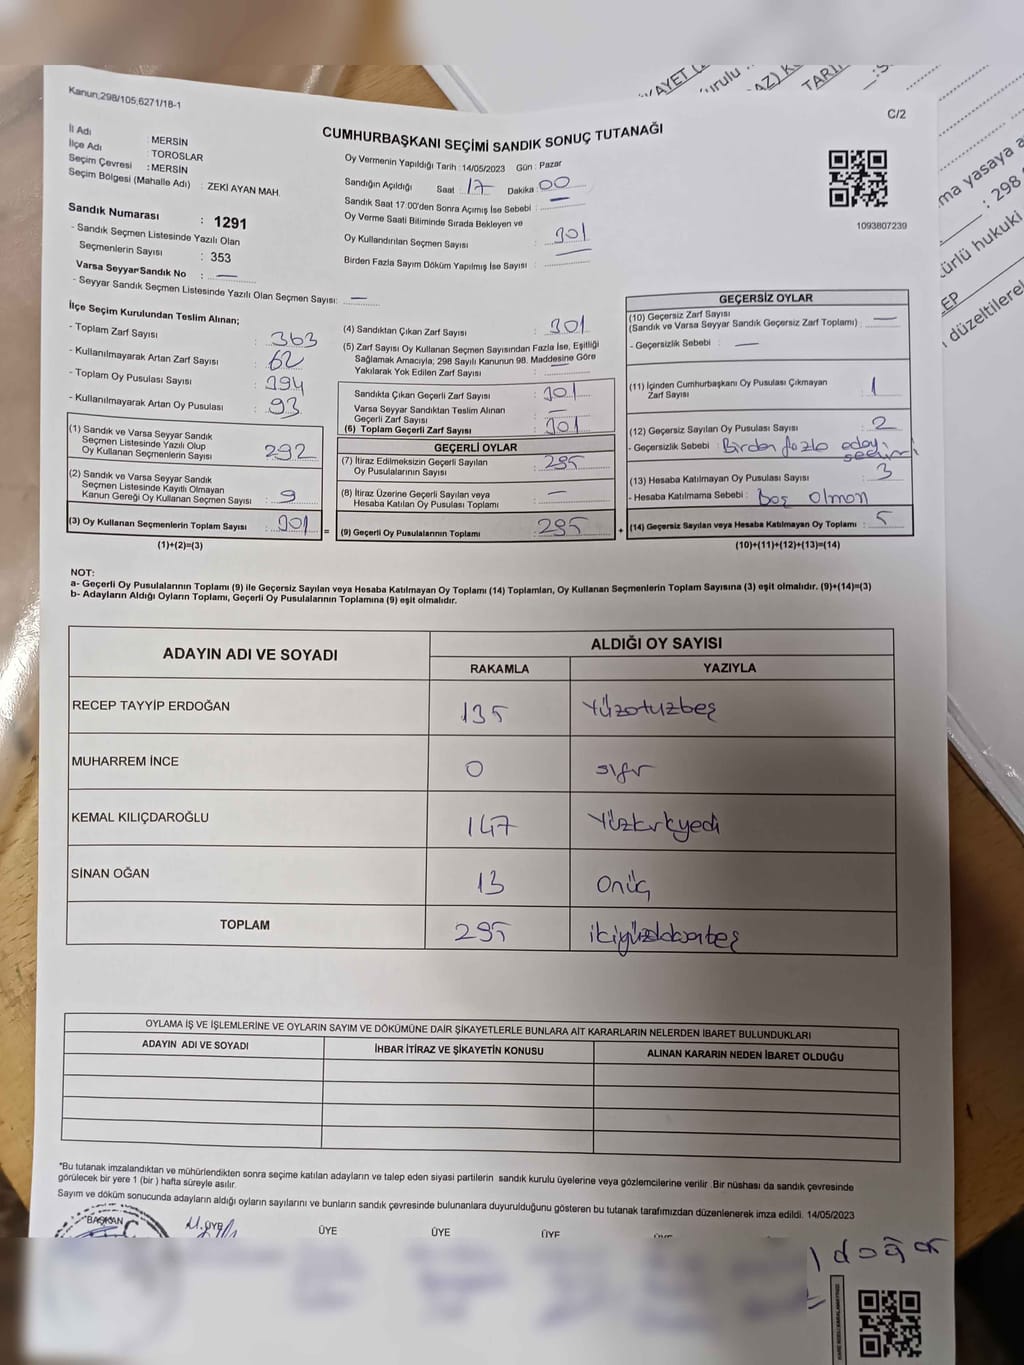 Kanun;298/105,6271/18-1
C/2
CUMHURBAŞKANI SEÇİMİ SANDIK SONUÇ TUTANAĞI
İl Adı : MERSİN
İlçe Adı : TOROSLAR
Seçim Çevresi : MERSİN
Seçim Bölgesi (Mahalle Adı) : ZEKİ AYAN MAH.
Sandık Numarası : 1291
- Sandık Seçmen Listesinde Yazılı Olan
Seçmenlerin Sayısı : 353
Varsa Seyyar Sandık No : —
- Seyyar Sandık Seçmen Listesinde Yazılı Olan Seçmen Sayısı: —
Oy Vermenin Yapıldığı Tarih : 14/05/2023 Gün : Pazar
Sandığın Açıldığı Saat : 17 Dakika : 00
Sandık Saat 17:00'den Sonra Açımış İse Sebebi : —
Oy Verme Saati Bitiminde Sırada Bekleyen ve
Oy Kullandırılan Seçmen Sayısı : 301
Birden Fazla Sayım Döküm Yapılmış İse Sayısı : —
1093807239
İlçe Seçim Kurulundan Teslim Alınan;
- Toplam Zarf Sayısı : 363
- Kullanılmayarak Artan Zarf Sayısı : 62
- Toplam Oy Pusulası Sayısı : 394
- Kullanılmayarak Artan Oy Pusulası : 93
(1) Sandık ve Varsa Seyyar Sandık
Seçmen Listesinde Yazılı Olup
Oy Kullanan Seçmenlerin Sayısı : 292
(2) Sandık ve Varsa Seyyar Sandık
Seçmen Listesinde Kayıtlı Olmayan
Kanun Gereği Oy Kullanan Seçmen Sayısı : 9
(3) Oy Kullanan Seçmenlerin Toplam Sayısı : 301 =
(1)+(2)=(3)
(4) Sandıktan Çıkan Zarf Sayısı : 301
(5) Zarf Sayısı Oy Kullanan Seçmen Sayısından Fazla İse, Eşitliği
Sağlamak Amacıyla; 298 Sayılı Kanunun 98. Maddesine Göre
Yakılarak Yok Edilen Zarf Sayısı : —
Sandıkta Çıkan Geçerli Zarf Sayısı : 301
Varsa Seyyar Sandıktan Teslim Alınan
Geçerli Zarf Sayısı : —
(6) Toplam Geçerli Zarf Sayısı : 301
GEÇERLİ OYLAR
(7) İtiraz Edilmeksizin Geçerli Sayılan
Oy Pusulalarının Sayısı : 295
(8) İtiraz Üzerine Geçerli Sayılan veya
Hesaba Katılan Oy Pusulası Toplamı : —
(9) Geçerli Oy Pusulalarının Toplamı : 295 +
GEÇERSİZ OYLAR
(10) Geçersiz Zarf Sayısı
(Sandık ve Varsa Seyyar Sandık Geçersiz Zarf Toplamı) : —
- Geçersizlik Sebebi : —
(11) İçinden Cumhurbaşkanı Oy Pusulası Çıkmayan
Zarf Sayısı : 1
(12) Geçersiz Sayılan Oy Pusulası Sayısı : 2
- Geçersizlik Sebebi : Birden fazla aday
seçimi
(13) Hesaba Katılmayan Oy Pusulası Sayısı : 3
- Hesaba Katılmama Sebebi : boş olması
(14) Geçersiz Sayılan veya Hesaba Katılmayan Oy Toplamı : 5
(10)+(11)+(12)+(13)=(14)
NOT:
a- Geçerli Oy Pusulalarının Toplamı (9) ile Geçersiz Sayılan veya Hesaba Katılmayan Oy Toplamı (14) Toplamları, Oy Kullanan Seçmenlerin Toplam Sayısına (3) eşit olmalıdır. (9)+(14)=(3)
b- Adayların Aldığı Oyların Toplamı, Geçerli Oy Pusulalarının Toplamına (9) eşit olmalıdır.
ADAYIN ADI VE SOYADI
ALDIĞI OY SAYISI
RAKAMLA YAZIYLA
RECEP TAYYİP ERDOĞAN 135 Yüzotuzbeş
MUHARREM İNCE 0 sıfır
KEMAL KILIÇDAROĞLU 147 Yüzkırkyedi
SİNAN OĞAN 13 Onüç
TOPLAM 295 ikiyüzdoksanbeş
OYLAMA İŞ VE İŞLEMLERİNE VE OYLARIN SAYIM VE DÖKÜMÜNE DAİR ŞİKAYETLERLE BUNLARA AİT KARARLARIN NELERDEN İBARET BULUNDUKLARI
ADAYIN ADI VE SOYADI İHBAR İTİRAZ VE ŞİKAYETİN KONUSU ALINAN KARARIN NEDEN İBARET OLDUĞU
*Bu tutanak imzalandıktan ve mühürlendikten sonra seçime katılan adayların ve talep eden siyasi partilerin sandık kurulu üyelerine veya gözlemcilerine verilir .Bir nüshası da sandık çevresinde
görülecek bir yere 1 (bir ) hafta süreyle asılır.
Sayım ve döküm sonucunda adayların aldığı oyların sayılarını ve bunların sandık çevresinde bulunanlara duyurulduğunu gösteren bu tutanak tarafımızdan düzenlenerek imza edildi. 14/05/2023
BAŞKAN ÜYE ÜYE ÜYE ÜYE